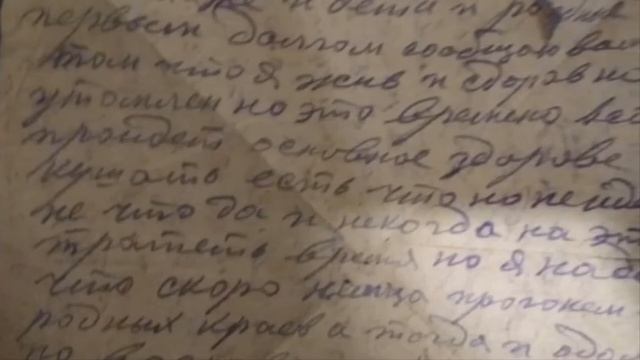 же и дети и родные
первым долгом сообщаю вам
том что я жив и здоров но
утомлен но это времено вс
пройдет основное здоровье
кушать есть что но неида
не что да и некогда на эт
тратеть время но я наде
что скоро немца прогоним
родных краев а тогда и